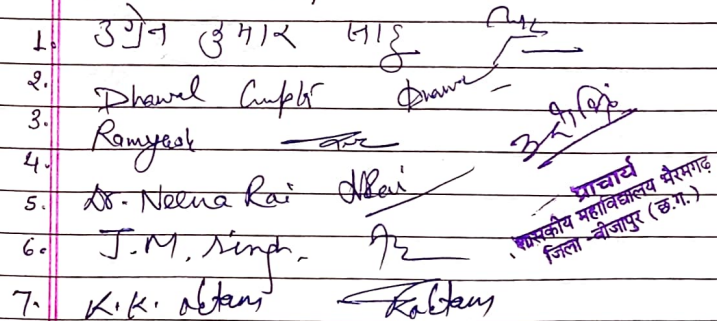 1. उग्रेन कुमार साहू
2. Dhawal Gupta
3. Ramyash
4.
5. Dr. Neena Rai NRai
6. J.M. Singh.
7. K.K. Netam
प्राचार्य
शासकीय महाविद्यालय भैरमगढ़
जिला-बीजापुर (छ.ग.)